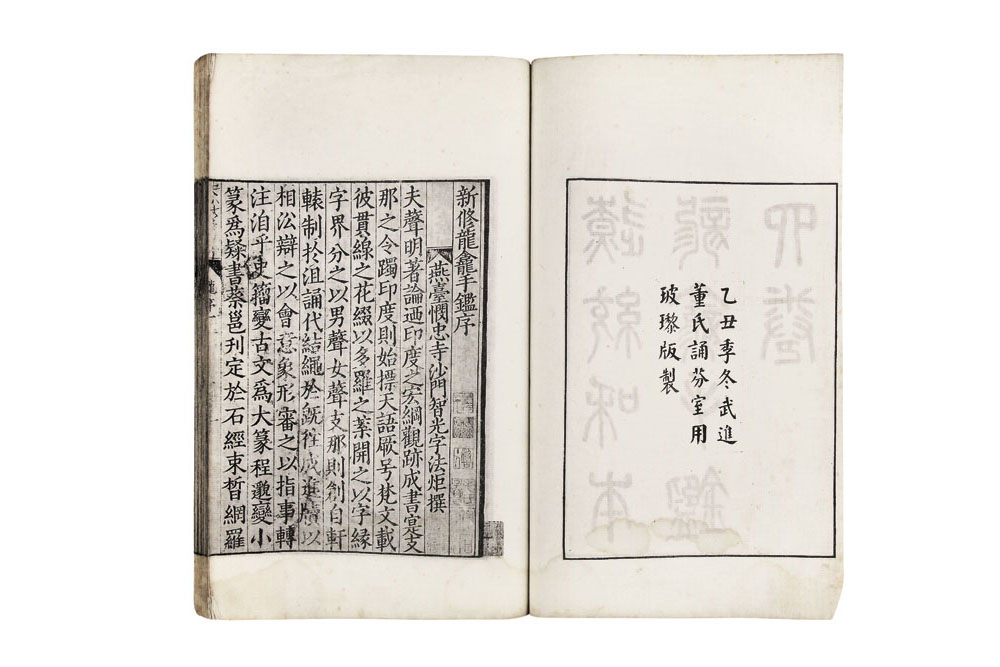 乙丑季冬武進
董氏誦芬室用
玻瓈版製
新修龍龕手鑑序
燕臺憫忠寺沙門智光字法炬撰
夫聲明著論迺印度之宏綱觀跡成書寔支
那之令躅印度則始標天語厥号梵文載
彼貫線之花綴以多羅之葉開之以字緣
字界分之以男聲女聲支那則創自軒
轅制於沮誦代結繩於旣往成進牘以
相沿辯之以會意象形審之以指事轉
注洎乎史籀變古文爲大篆程邈變小
篆爲隸書蔡邕刊定於石經束晳網羅